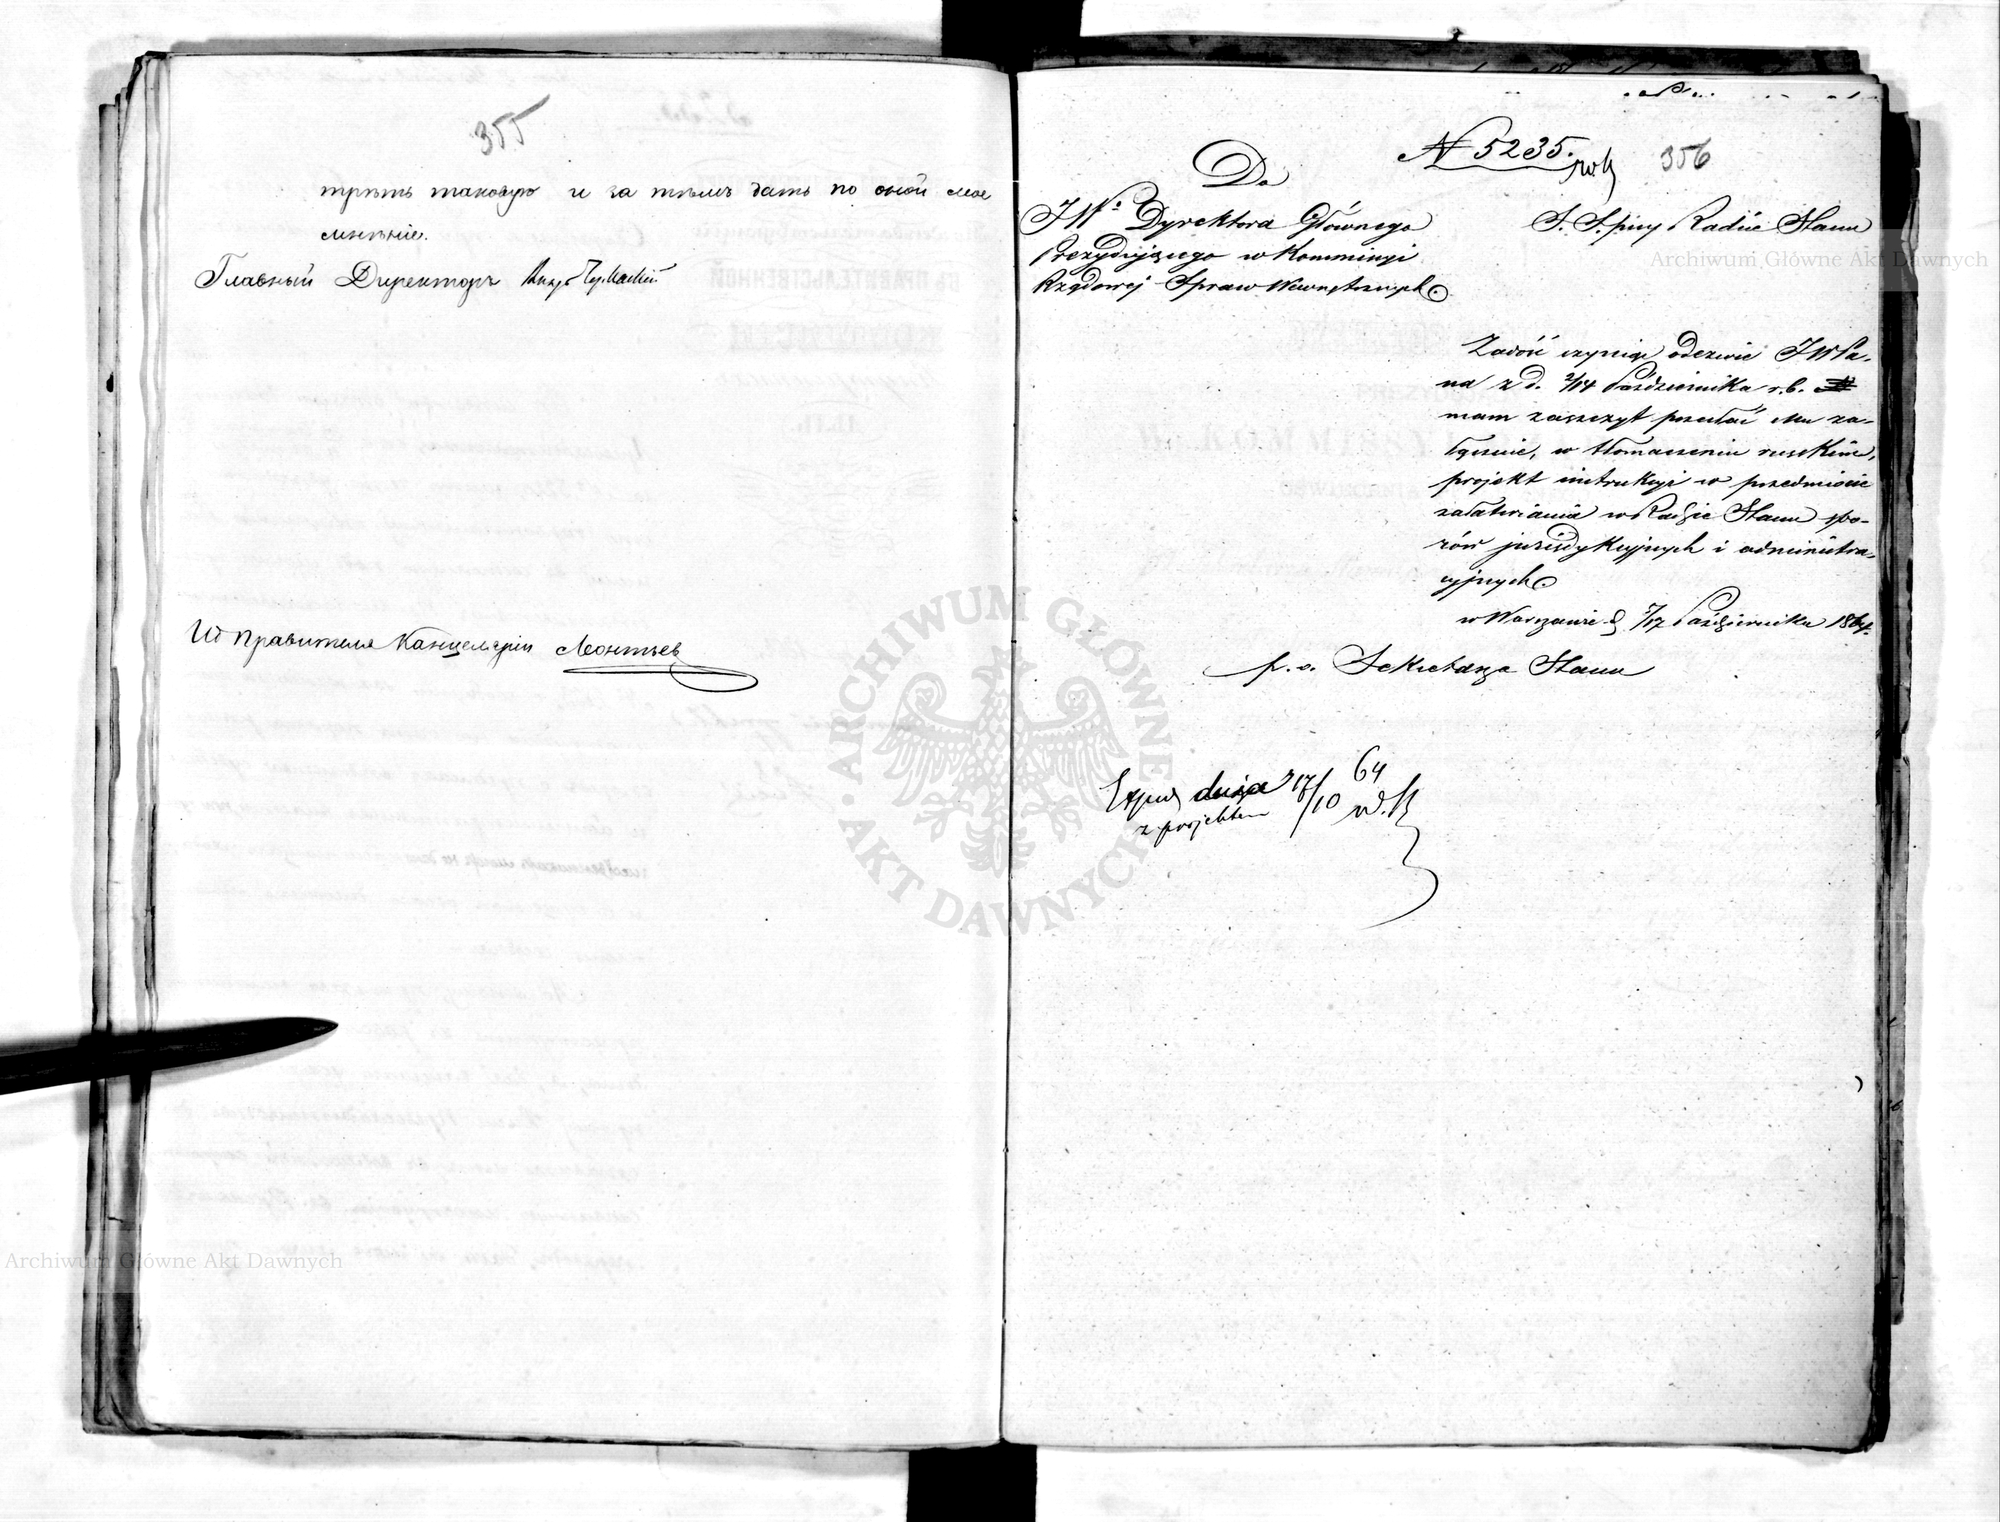 355
трѣть таковую и за тѣмъ дать по оной мое
мнѣніе.
Главный Директоръ Князь Черкаскій
ИД Правителя Канцеляріи Леонтьев
№ 5235. 356
Do
JW° Dyrektora Głównego
Prezydującego w Kommissyi
Rządowej Spraw Wewnętrznych.
S. S. przy Radzie Stanu
Zadość czyniąc odezwie JW Pa-
na z d. 2/14 Października r.b.
mam zaszczyt przesłać Mu za-
łącznie, w tłomaczeniu ruskiém,
projekt instrukcyi w przedmiocie
załatwiania w Radzie Stanu spo-
rów jurisdykcyjnych i administra-
cyjnych.
w Warszawie d. 5/17 Października 1864 r.
p. o. Sekretarza Stanu
Exped dnia 17/10 64
z projektem
Archiwum Główne Akt Dawnych
Archiwum Główne Akt Dawnych
ARCHIWUM GŁÓWNE AKT DAWNYCH